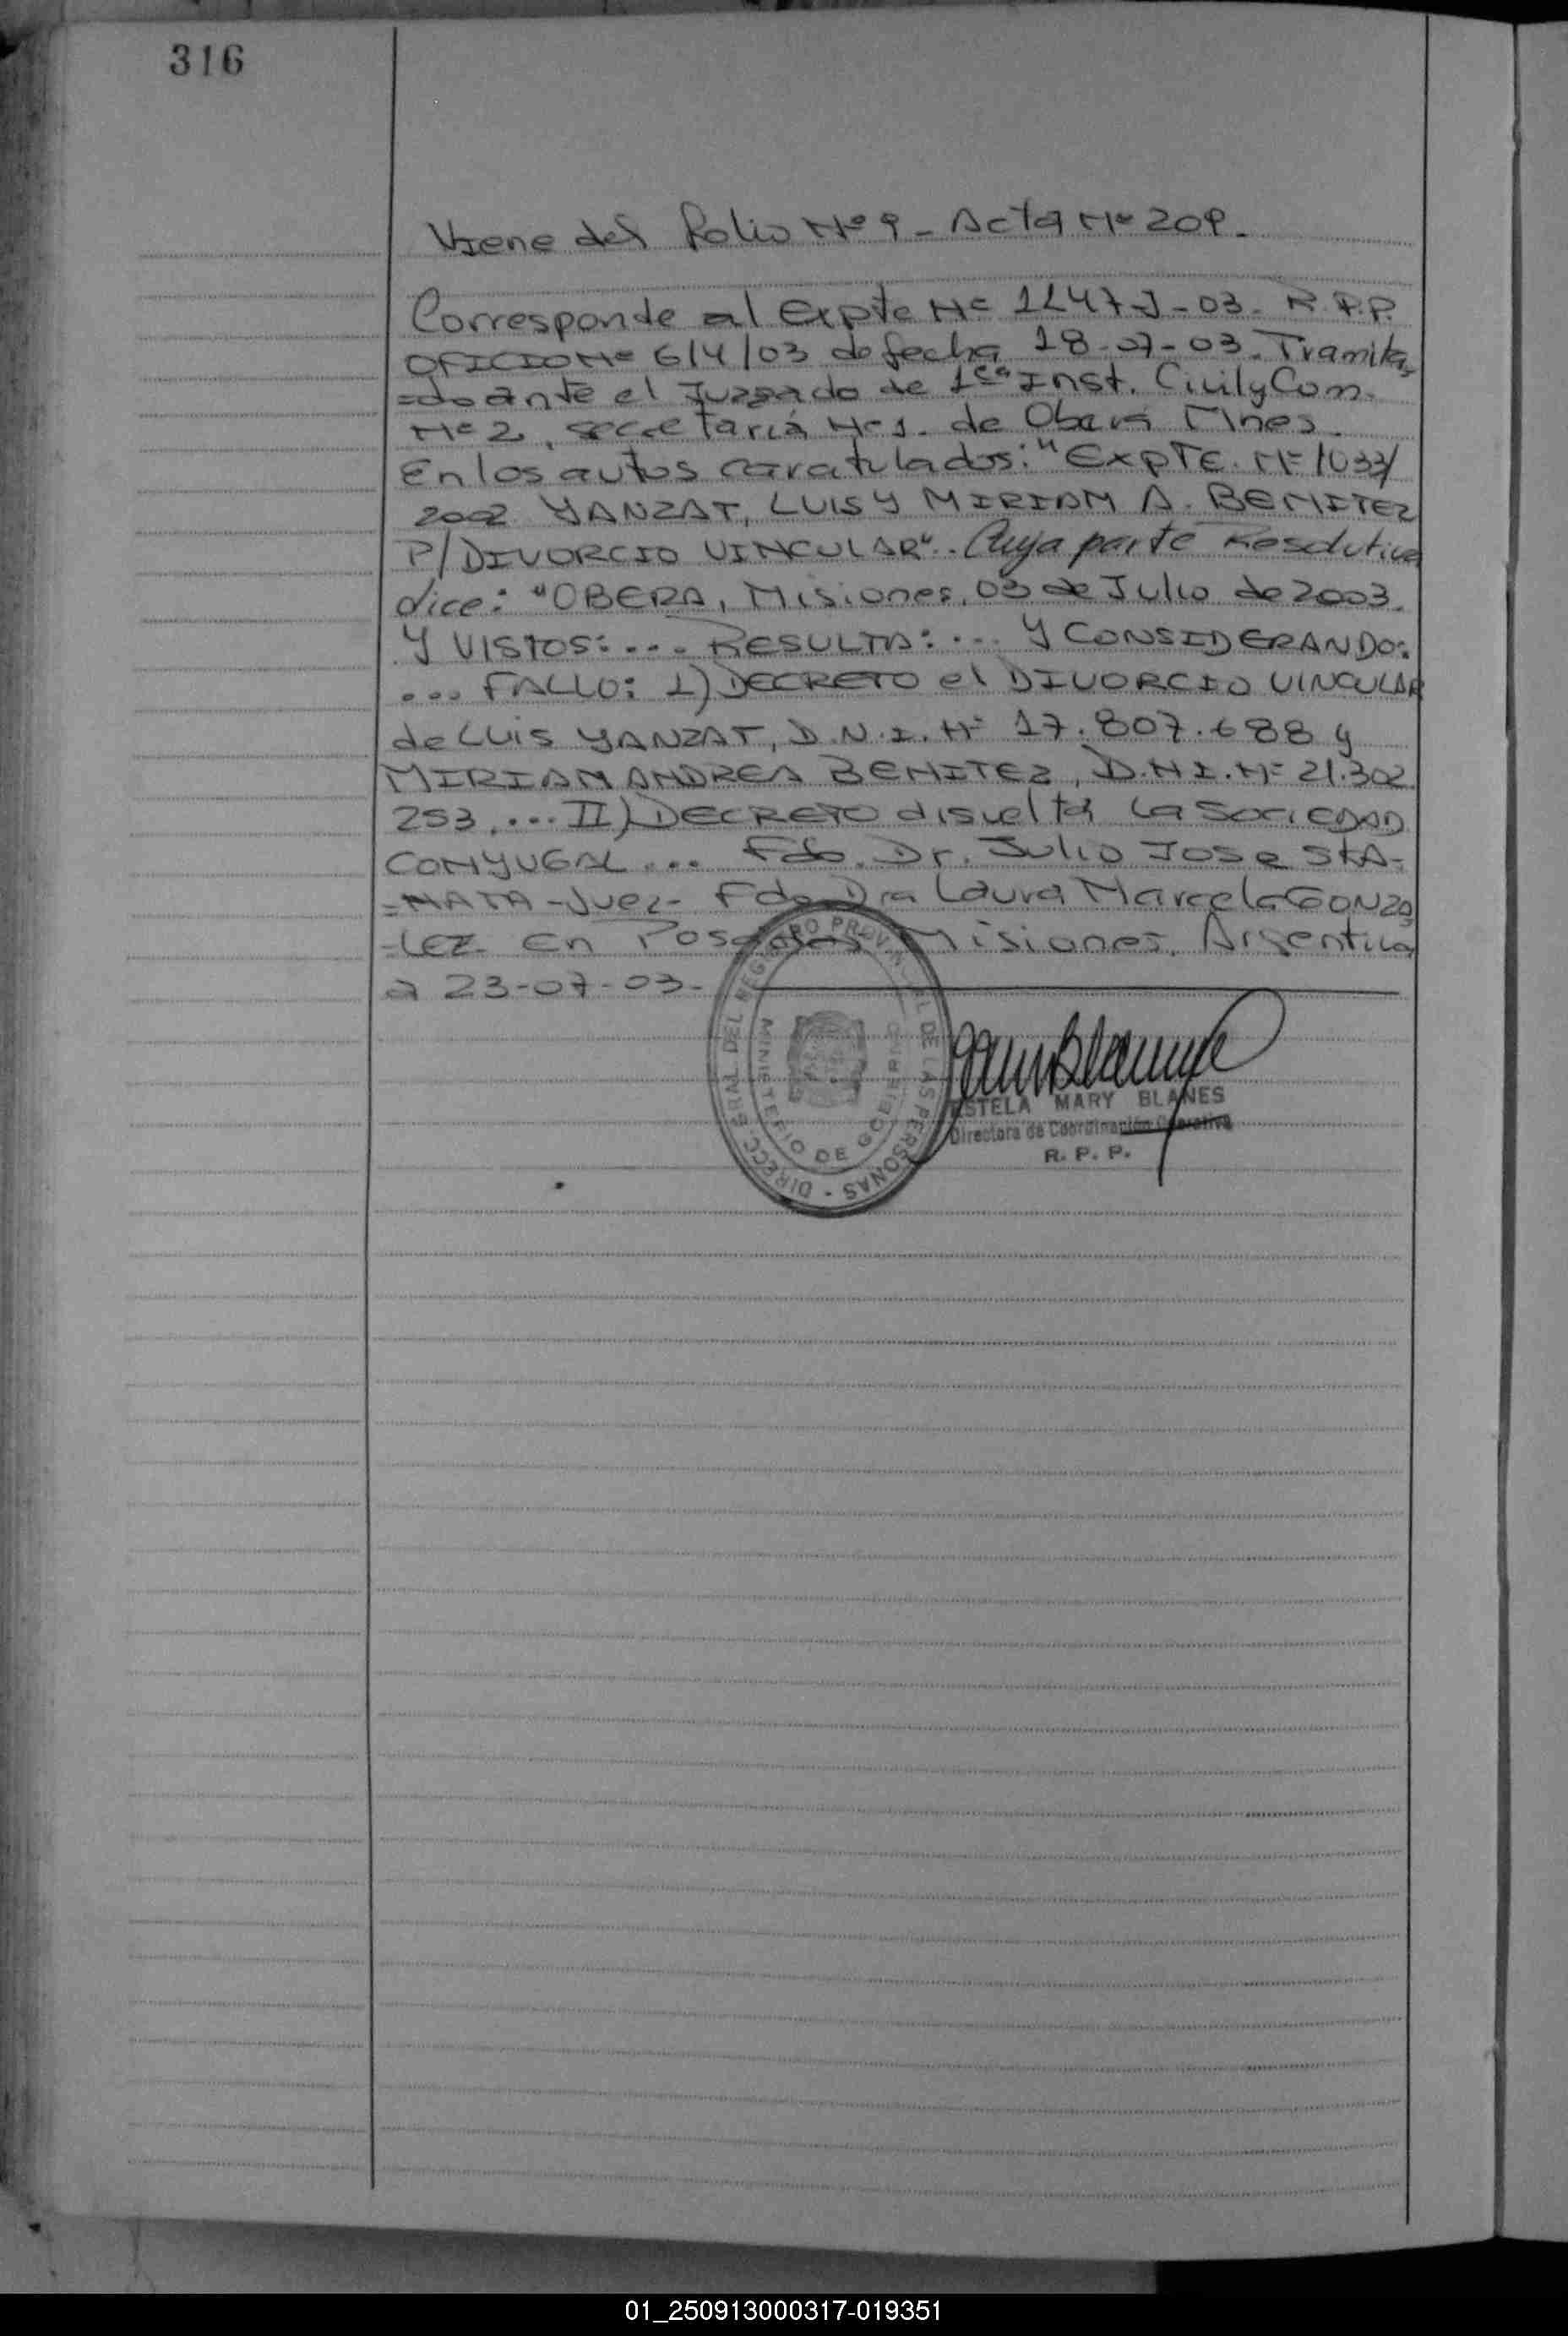 316
Viene del Folio Nº 9 - Acta Nº 209.
Corresponde al Expte Nº 1147-J-03. R.P.P.
OFICIO Nº 614/03 de fecha 18-07-03. Tramita-
=do ante el Juzgado de 1era Inst. Civil y Com.
Nº 2, secretaria Nº 1. de Obera Mnes.
En los autos caratulados: "EXPTE. Nº 1033/
2002 YANZAT, LUIS Y MIRIAM A. BENITEZ
P/DIVORCIO VINCULAR". Cuya parte Resolutiva
dice: "OBERA, Misiones, 03 de Julio de 2003.
Y VISTOS: ... RESULTA: ... Y CONSIDERANDO:
... FALLO: 1) DECRETO el DIVORCIO VINCULAR
de LUIS YANZAT, D.N.I. Nº 17.807.688 y
MIRIAM ANDREA BENITEZ, D.N.I. Nº 21.302.
253. ... II) DECRETO disuelta la SOCIEDAD
CONYUGAL ... Fdo. Dr. Julio Jose SKA-
=NATA - Juez - Fdo Dra Laura Marcela GONZA
-LEZ En Posadas Misiones, Argentina
a 23-07-03.-
DIRECC. GRAL. DEL REGISTRO PROVINCIAL DE LAS PERSONAS -
MINISTERIO DE GOBIERNO
ESTELA MARY BLANES
Directora de Coordinación Operativa
R. P. P.
01_250913000317-019351